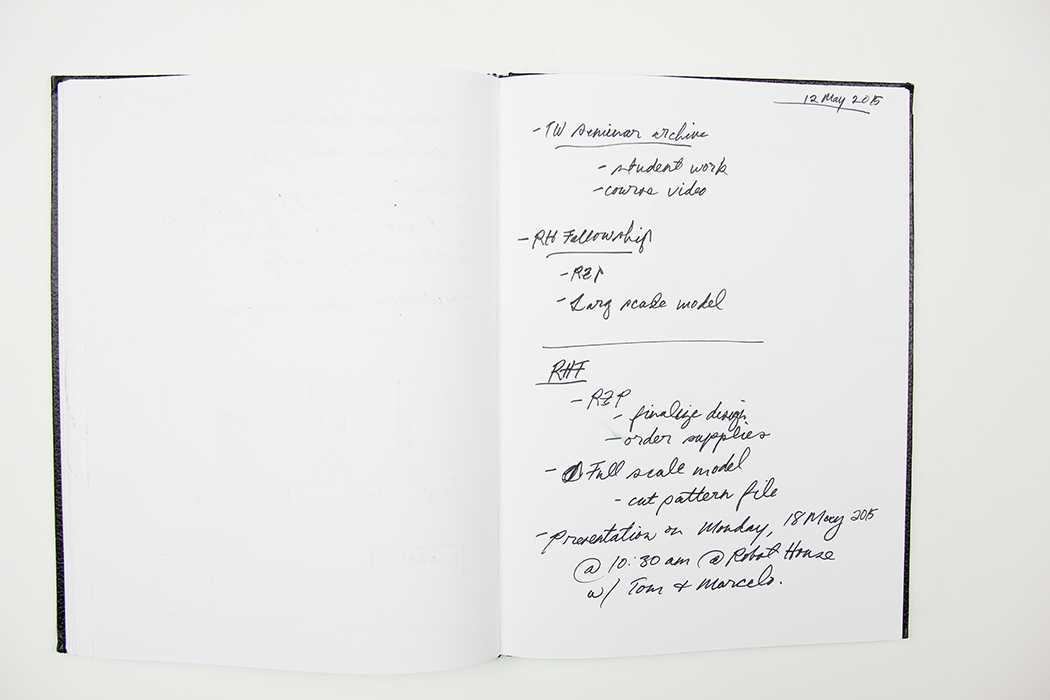 12 May 2015
- TW Seminar archive
- student work
- course video
- RH Fellowship
- RZP
- Larg scale model
RHF
- RZP
- finalize design
- order supplies
- Full scale model
- cut pattern file
- presentation on Monday, 18 May 2015
@ 10:30 am @ Robot House
w/ Tom & Marcelo.